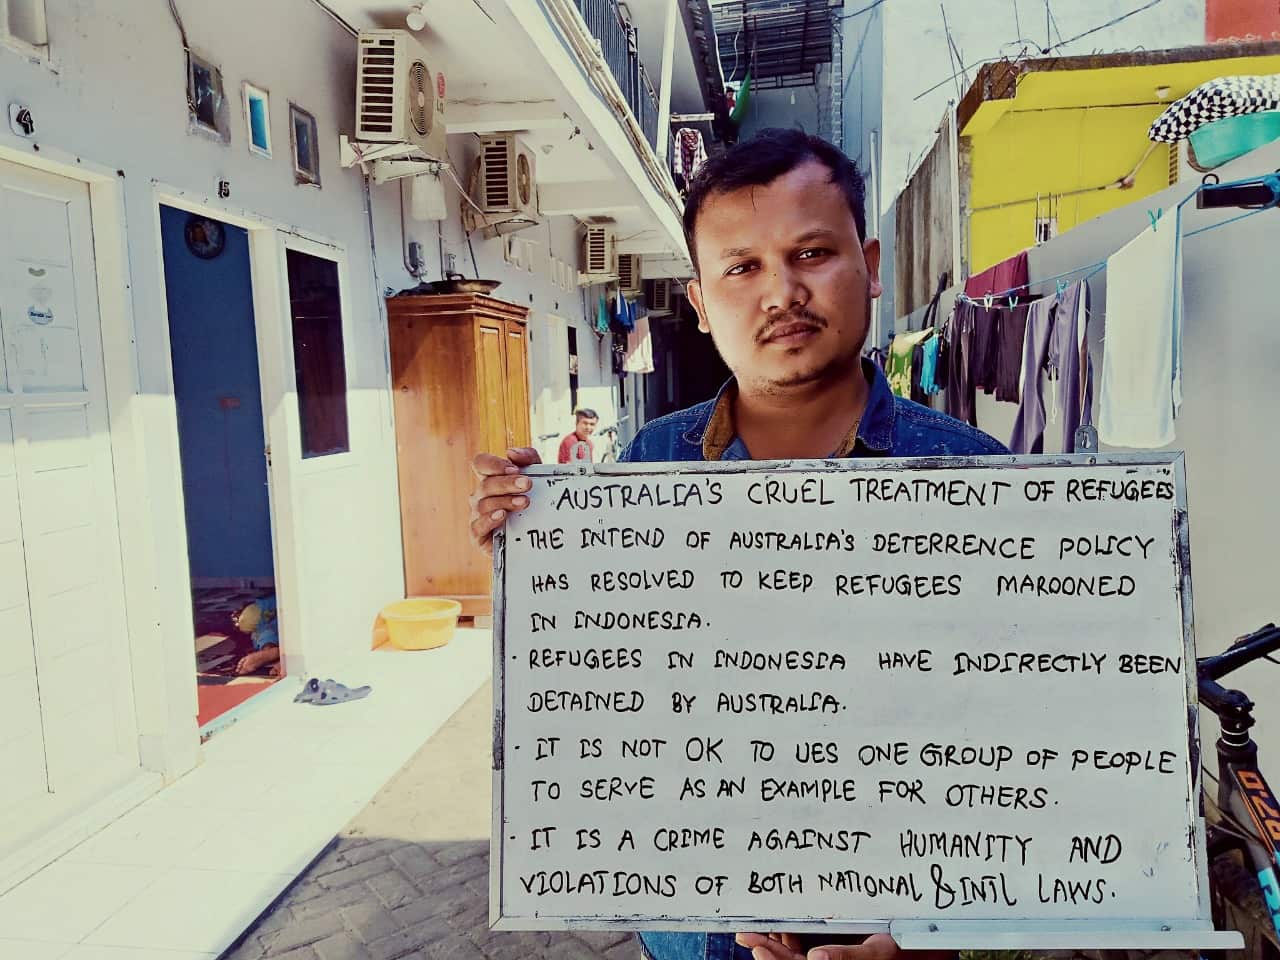 4
5
"AUSTRALIA'S CRUEL TREATMENT OF REFUGEES"
· THE INTEND OF AUSTRALIA'S DETERRENCE POLICY
HAS RESOLVED TO KEEP REFUGEES MAROONED
IN INDONESIA.
· REFUGEES IN INDONESIA HAVE INDIRECTLY BEEN
DETAINED BY AUSTRALIA.
· IT IS NOT OK TO UES ONE GROUP OF PEOPLE
TO SERVE AS AN EXAMPLE FOR OTHERS.
· IT IS A CRIME AGAINST HUMANITY AND
VIOLATIONS OF BOTH NATIONAL & INTL LAWS.